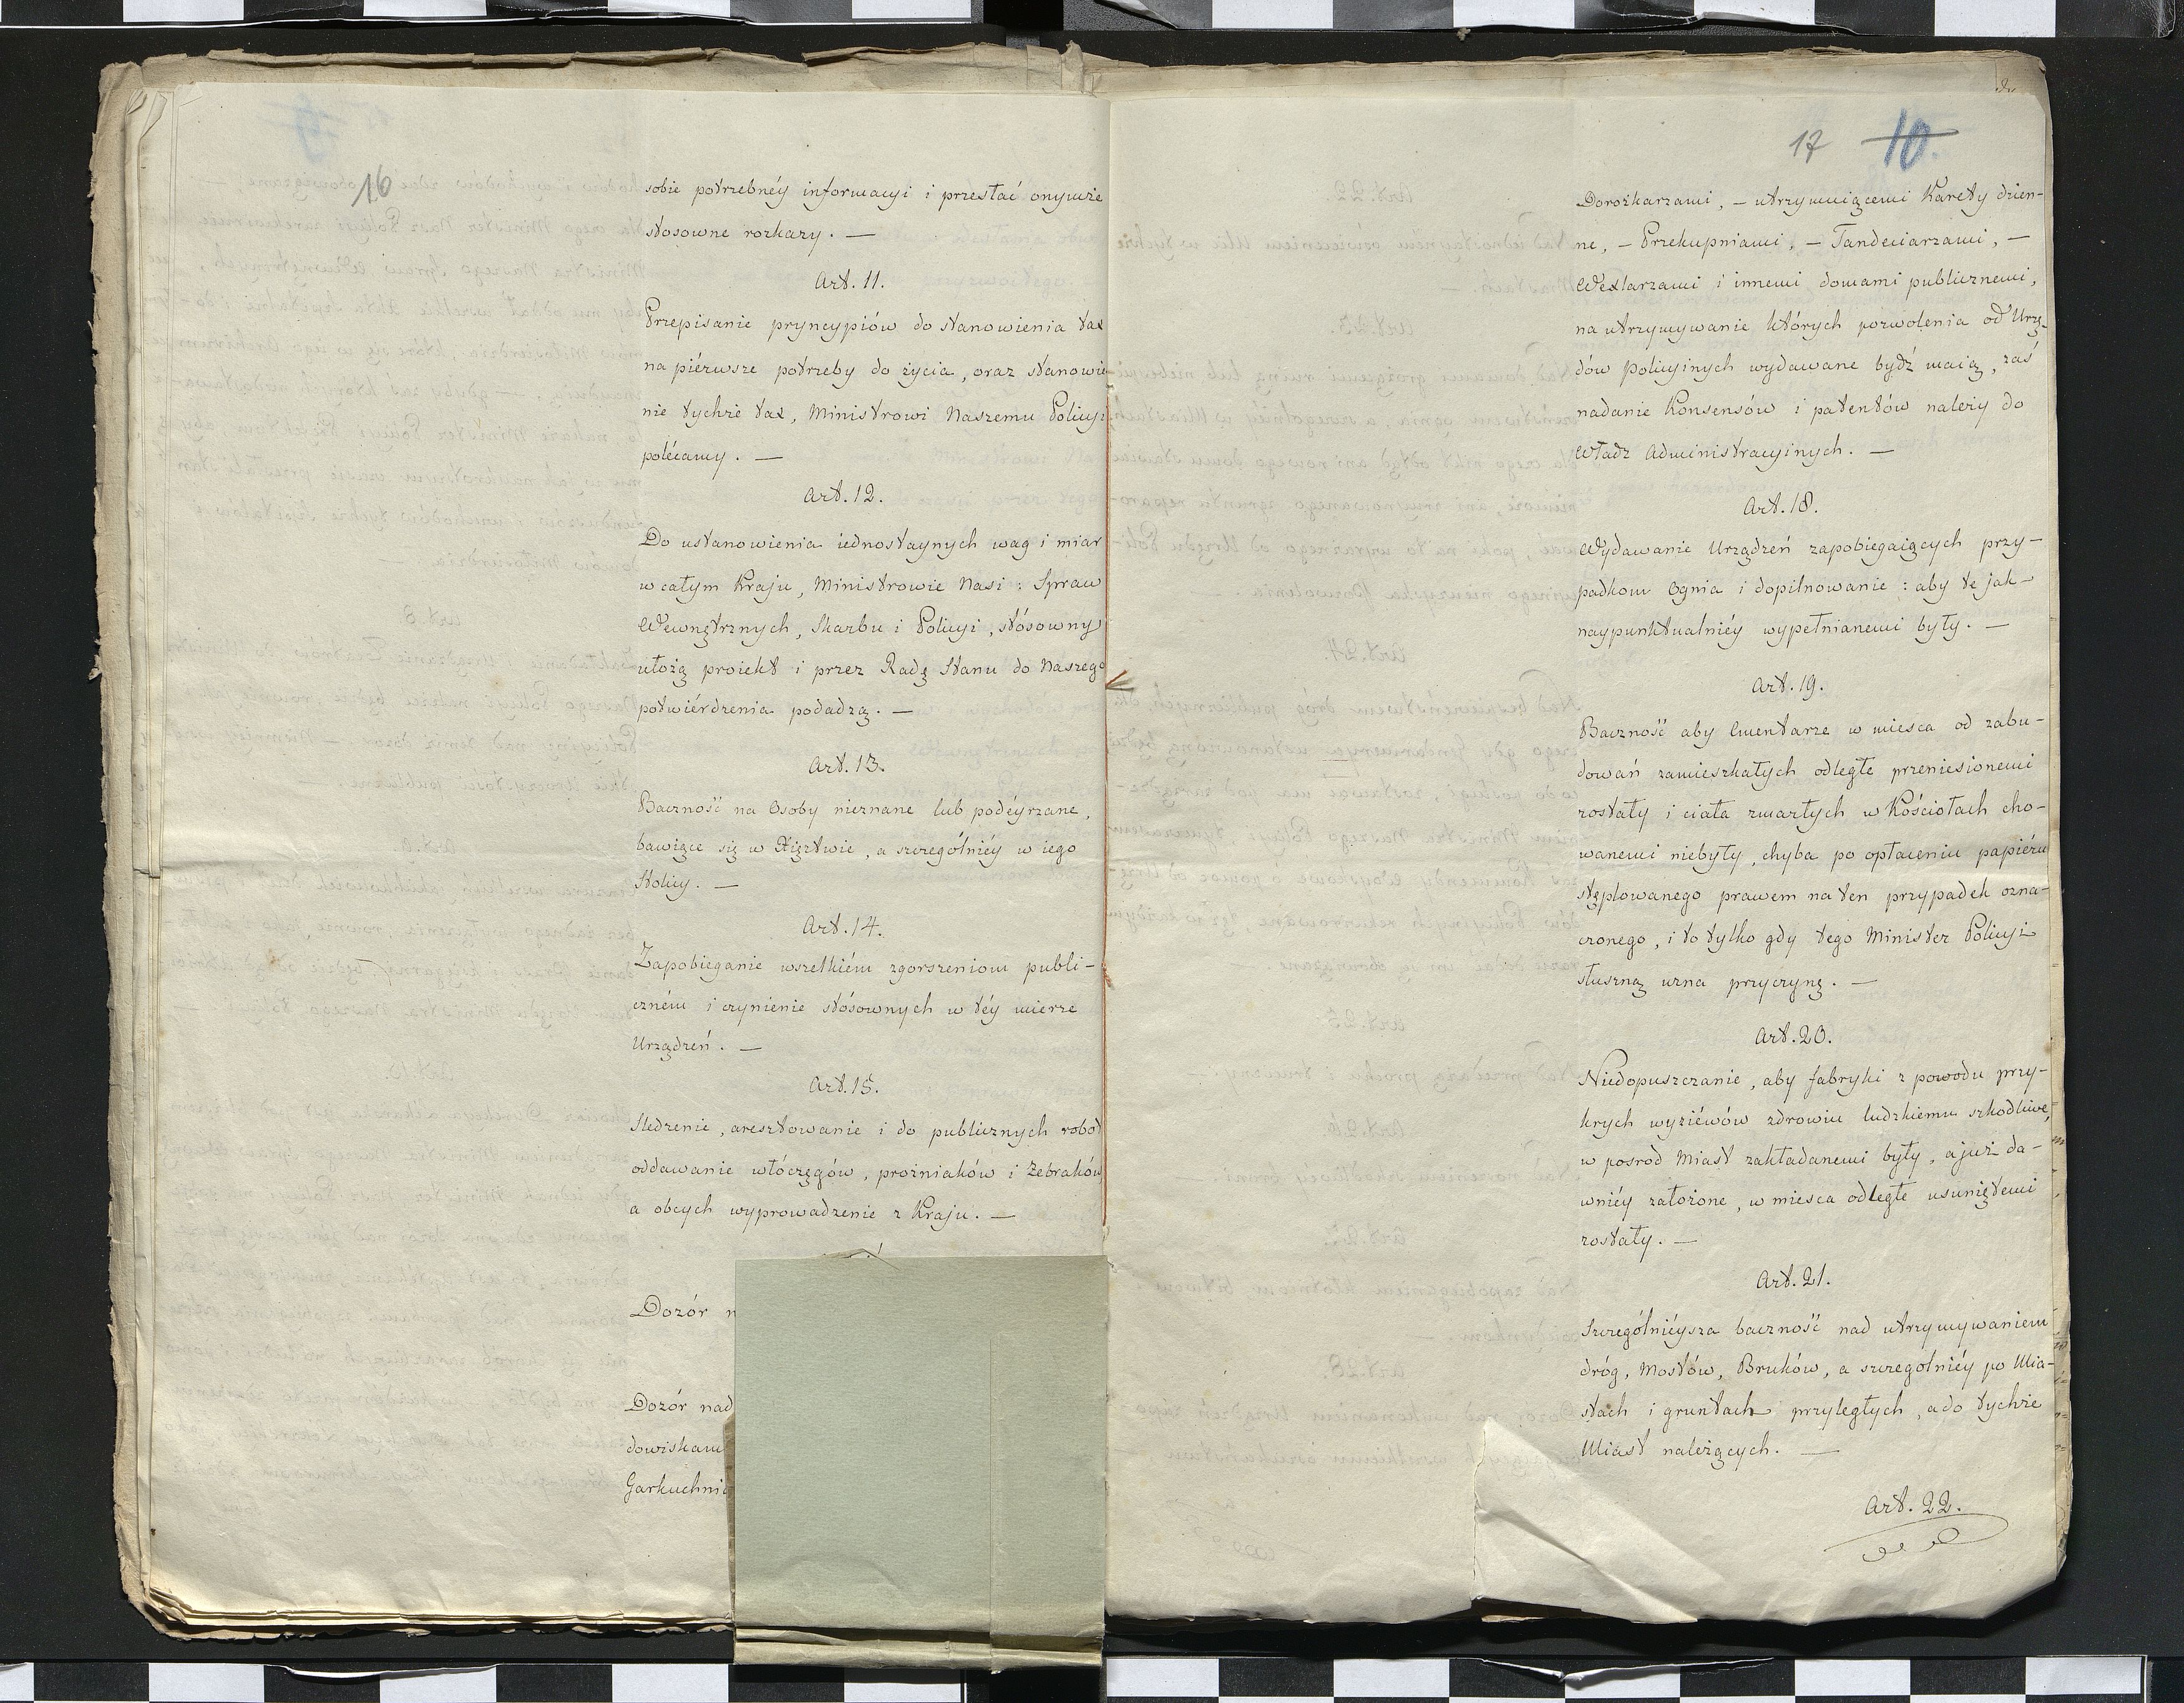 16
sobie potrzebnéy informacyi i przesłać onymże
stosowne rozkazy. —
Art. 11.
Przepisanie pryncypiów do stanowienia tax
na piérwsze potrzeby do życia, oraz stanowie-
nie tychże tax, Ministrowi Naszemu Policyi
polécamy. —
Art. 12.
Do ustanowienia iednostaynych wag i miar
w całym Kraju, Ministrowie Nasi: Spraw
Wewnętrznych, Skarbu i Policyi, stósowny
ułożą proiekt i przez Radę Stanu do Naszego
potwiérdzenia podadzą. —
Art. 13.
Baczność na Osoby nieznane lub podéyrzane,
bawiące się w Xięztwie, a szczególniéy w iego
Stolicy. —
Art. 14.
Zapobieganie wszelkiém zgorszeniom publi-
czném i czynienie stósownych w téy mierze
Urządzeń. —
Art. 15.
Sledzenie, aresztowanie i do publicznych robot
oddawanie włóczęgów, prożniaków i żebraków
a obcych wyprowadzenie z Kraju. —
Dozór
Dozór nad
Garkuchnia
17 10.
Dorożkarzami, — utrzymuiącemi Karety dzien-
ne, — Przekupniami, — Tandeciarzami, —
Wexlarzami i innemi domami publicznemi,
na utrzymywanie których pozwolenia od Urzę-
dów policyinych wydawane bydź maią, zaś
nadanie Konsensów i patentów należy do
Władz Administracyinych. —
Art. 18.
Wydawanie Urządzeń zapobiegaiących przy-
padkom Ognia i dopilnowanie: aby te jak-
naypunktualniéy wypełnianemi były. —
Art. 19.
Baczność aby Cmentarze w miesca od zabu-
dowań zamieszkałych odległe przeniesionemi
zostały i ciała zmarłych w Kościołach cho-
wanemi niebyły, chyba po opłaceniu papiéru
stęplowanego prawem na ten przypadek ozna-
czonego, i to tylko gdy tego Minister Policyi
słuszną uzna przyczynę. —
Art. 20.
Niedopuszczanie, aby fabryki z powodu przy-
krych wyziéwów zdrowiu ludzkiemu szkodliwe,
w posrod Miast zakładanemi były, a już da-
wniéy założone, w miesca odległe usuniętemi
zostały. —
Art. 21.
Szczególniéysza baczność nad utrzymywaniem
dróg, Mostów, Bruków, a szczególniéy po Mia-
stach i gruntach przyległych, a do tychże
Miast należących. —
Art. 22.